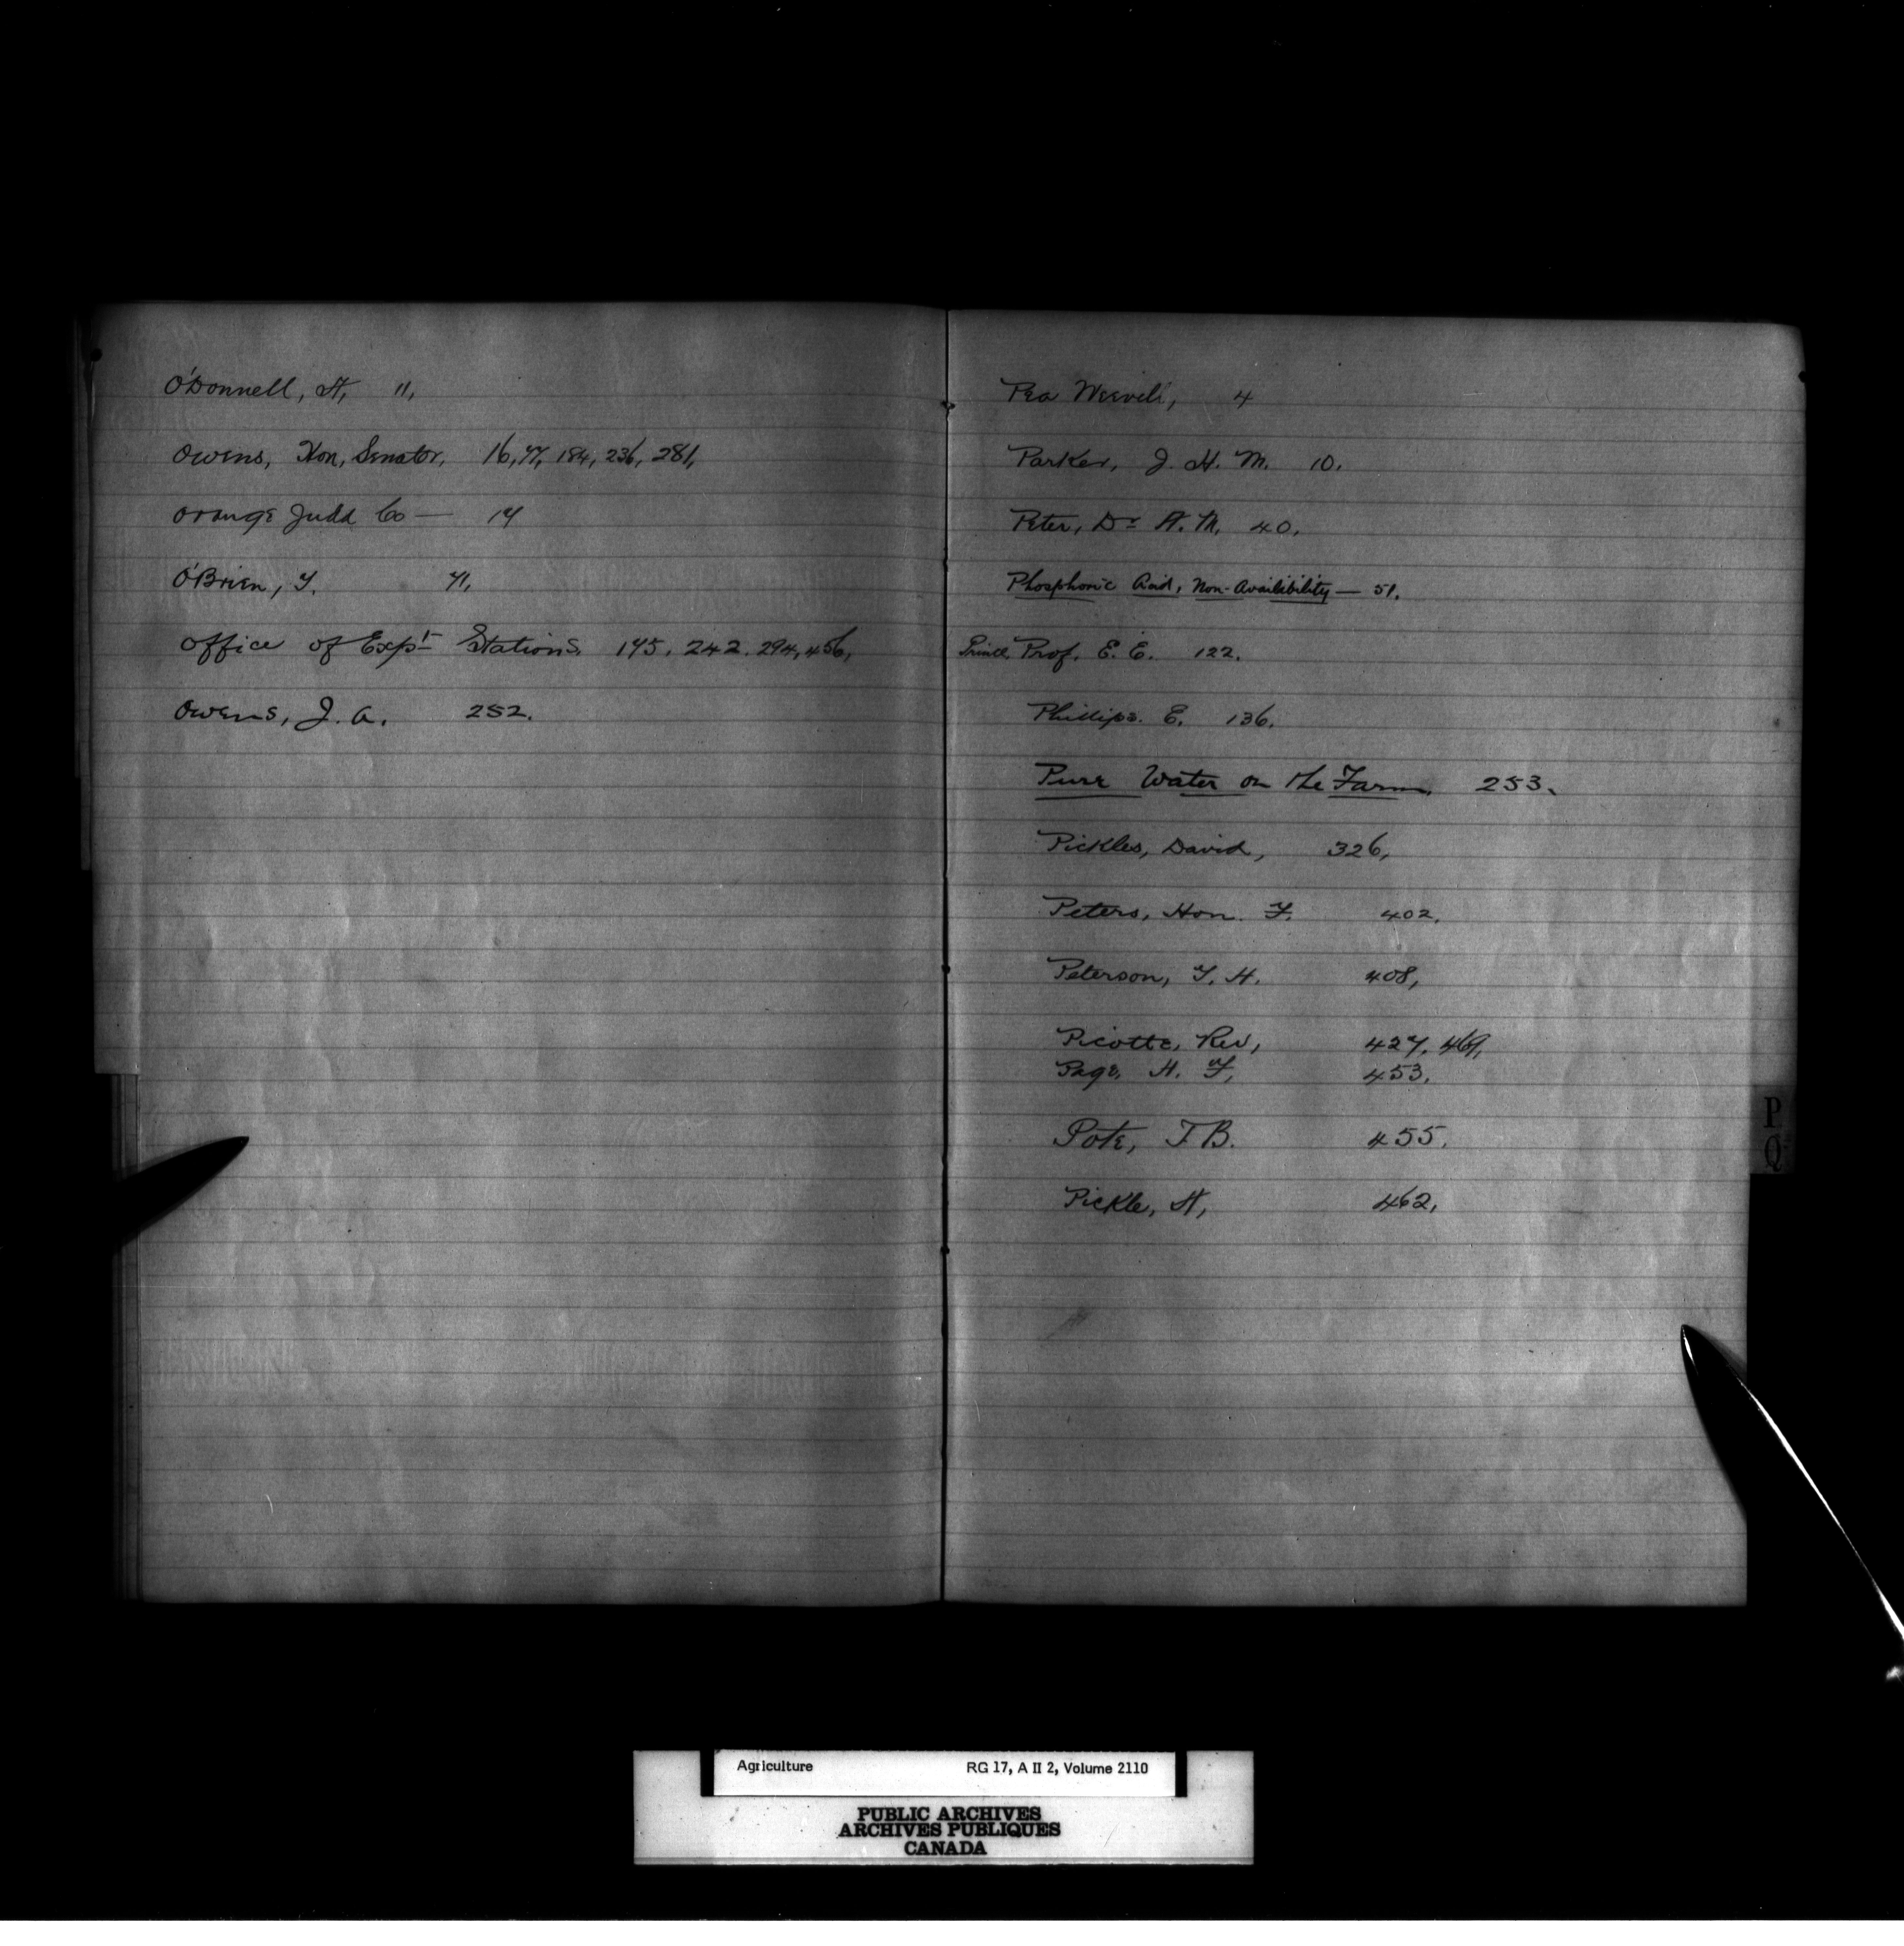 O'Donnell, H, 11,
Owens, Hon, Senator, 16, 47, 184, 236, 281,
Orange Judd Co — 17
O'Brien, T. 71,
Office of Expt Stations. 175, 242. 294, 456,
Owens, J. A. 252.
Pea Weevil, 4
Parker, J. H. M. 10.
Peter, Dr A. M. 40.
Phosphoric Acid, Non-Availibility — 51.
Prince, Prof. E. E. 122.
Phillips. E. 136.
Pure Water on the Farm. 253.
Pickles, David, 326,
Peters, Hon. F. 402.
Peterson, T. H. 408,
Picotte, Rev, 427, 469,
Page, H. F, 453.
Pote, J B. 455.
Pickle, H, 462,
P
Q
Agriculture RG 17, A II 2, Volume 2110
PUBLIC ARCHIVES
ARCHIVES PUBLIQUES
CANADA